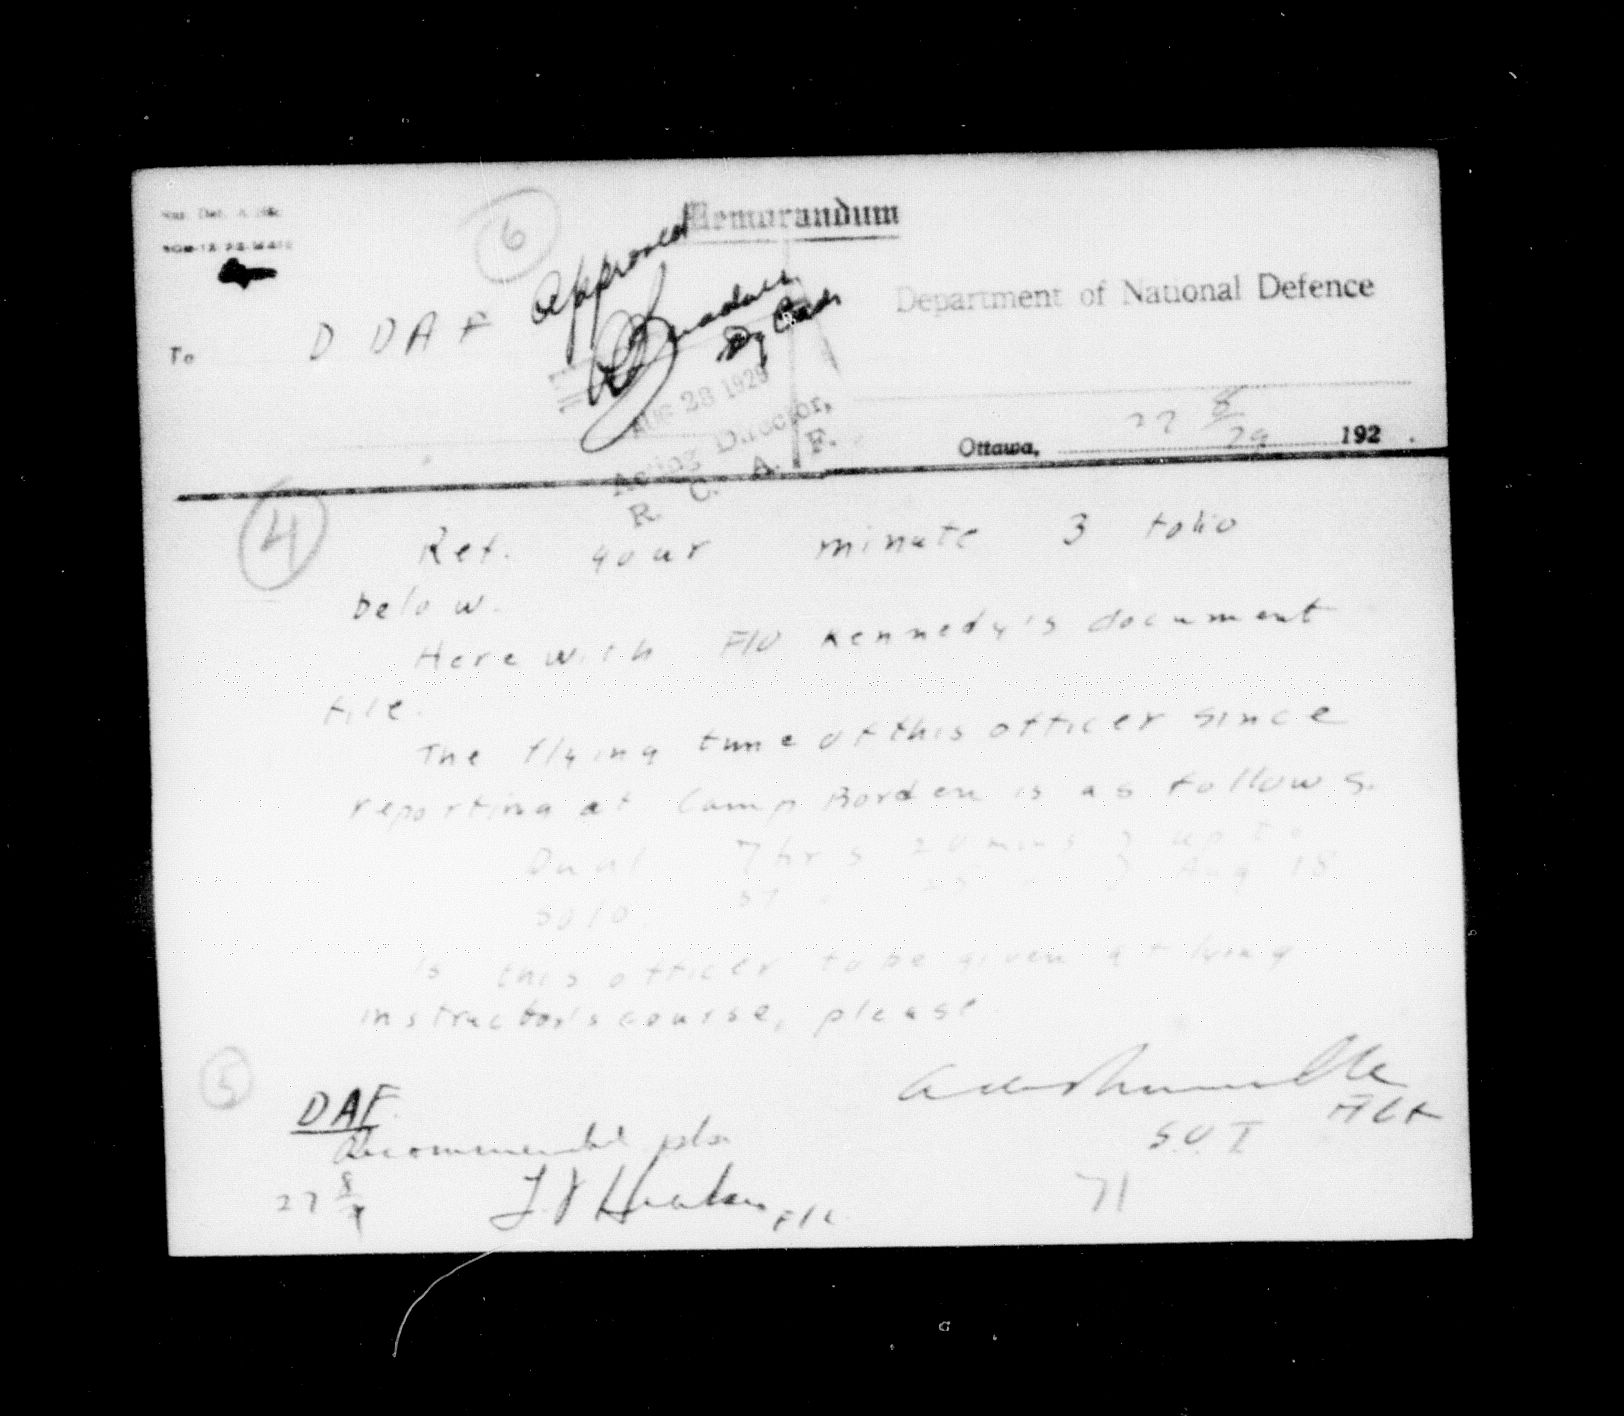 6
Memorandum
Approved
Department of National Defence
To D DAF
AUG 28 1929
Acting Director,
R. C. A. F.
Ottawa, 27 8/29 192 .
4
Ref. your minute 3 folio
below.
Herewith F/O Kennedy's document
file.
The flying time of this officer since
reporting at Camp Borden is as follows.
Dual 7 hrs 20 mins } up to
Solo. 57 } Aug 18.
Is this officer to be given a flying
instructor's course, please
5
DAF
Recommended pls
F/Lt
S.O. I
27 8
F/L
71